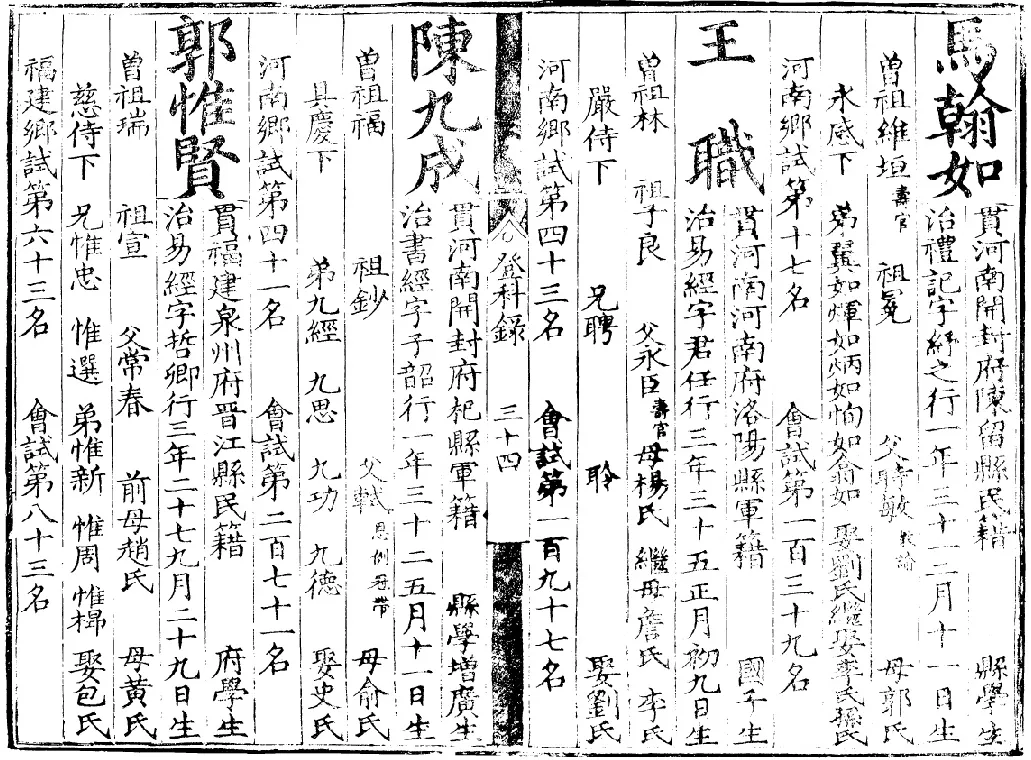 馬翰如
貫河南開封府陳留縣民籍 縣學生
治禮記字紓之行一年三十二月十一日生
曾祖維垣壽官 祖冕 父時敏教諭 母郭氏
永感下 弟翼如 煇如 炳如 恂如 翕如 娶劉氏 繼娶李氏 孫氏
河南鄉試第十七名 會試第一百三十九名
王職
貫河南河南府洛陽縣軍籍 國子生
治易經字君任行三年三十五正月初九日生
曾祖林 祖子良 父永臣壽官 母楊氏 繼母詹氏 李氏
嚴侍下 兄聘 聆 娶劉氏
河南鄉試第四十三名 會試第一百九十七名
登科錄 三十四
陳九成
貫河南開封府杞縣軍籍 縣學增廣生
治書經字子韶行一年三十二五月十一日生
曾祖福 祖鈔 父軾恩例冠帶 母俞氏
具慶下 弟九經 九思 九功 九德 娶史氏
河南鄉試第四十一名 會試第二百七十一名
郭惟賢
貫福建泉州府晉江縣民籍 府學生
治易經字哲卿行三年二十七九月二十九日生
曾祖瑞 祖宣 父常春 前母趙氏 母黃氏
慈侍下 兄惟忠 惟選 弟惟新 惟周 惟梆 娶包氏
福建鄉試第六十三名 會試第八十三名